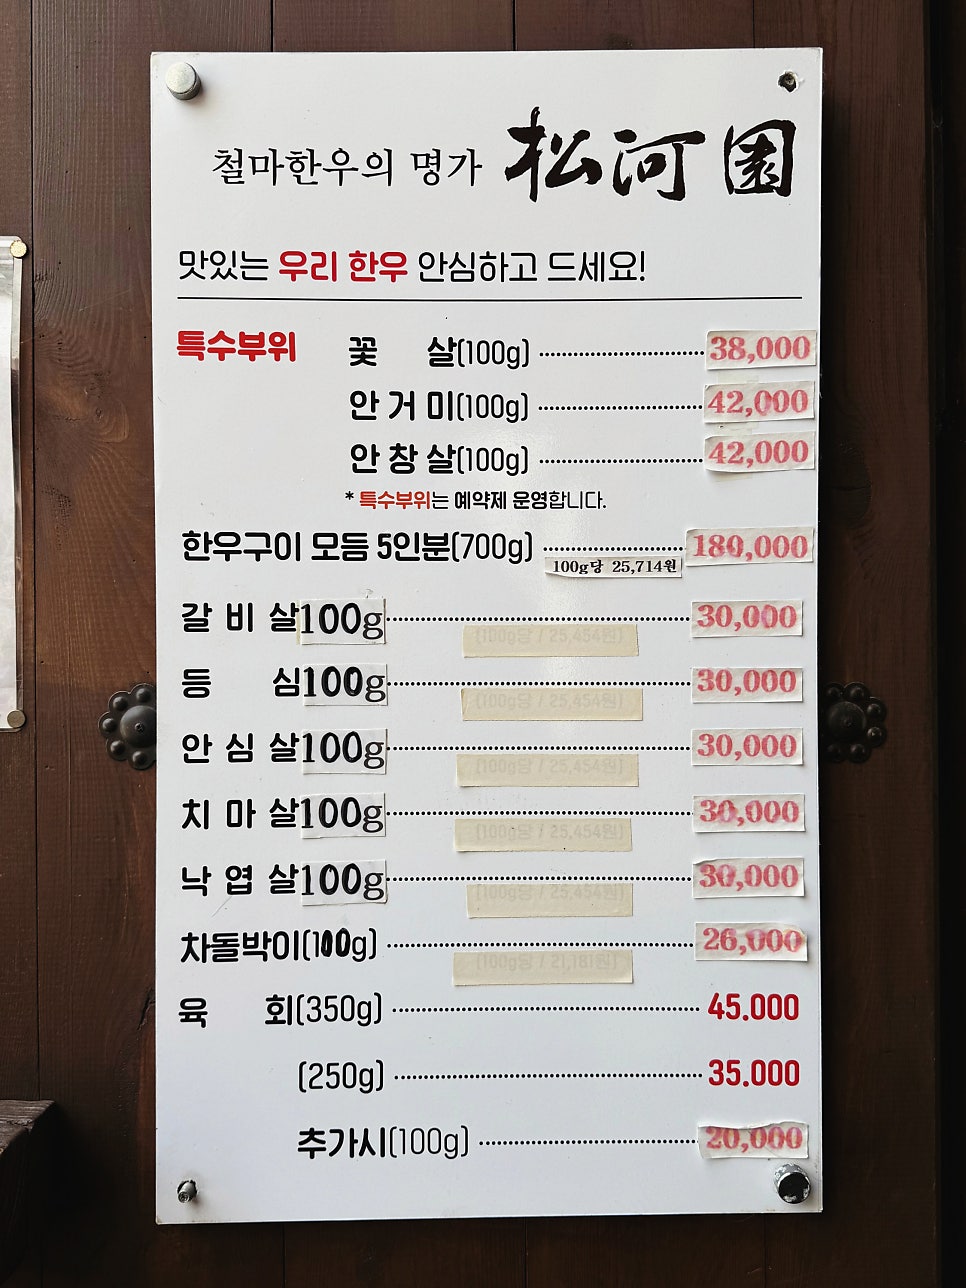 철마한우의 명가 松河園
맛있는 우리 한우 안심하고 드세요!
특수부위 꽃 살(100g) 38,000
안거미(100g) 42,000
안창살(100g) 42,000
* 특수부위는 예약제 운영합니다.
한우구이 모듬 5인분(700g) 180,000
100g당 25,714원
갈비살100g 30,000
(100g당 / 25,454원)
등 심100g 30,000
(100g당 / 25,454원)
안심살100g 30,000
(100g당 / 25,454원)
치마살100g 30,000
(100g당 / 25,454원)
낙엽살100g 30,000
(100g당 / 25,454원)
차돌박이(100g) 26,000
(100g당 / 21,181원)
육 회(350g) 45.000
(250g) 35.000
추가시(100g) 20,000